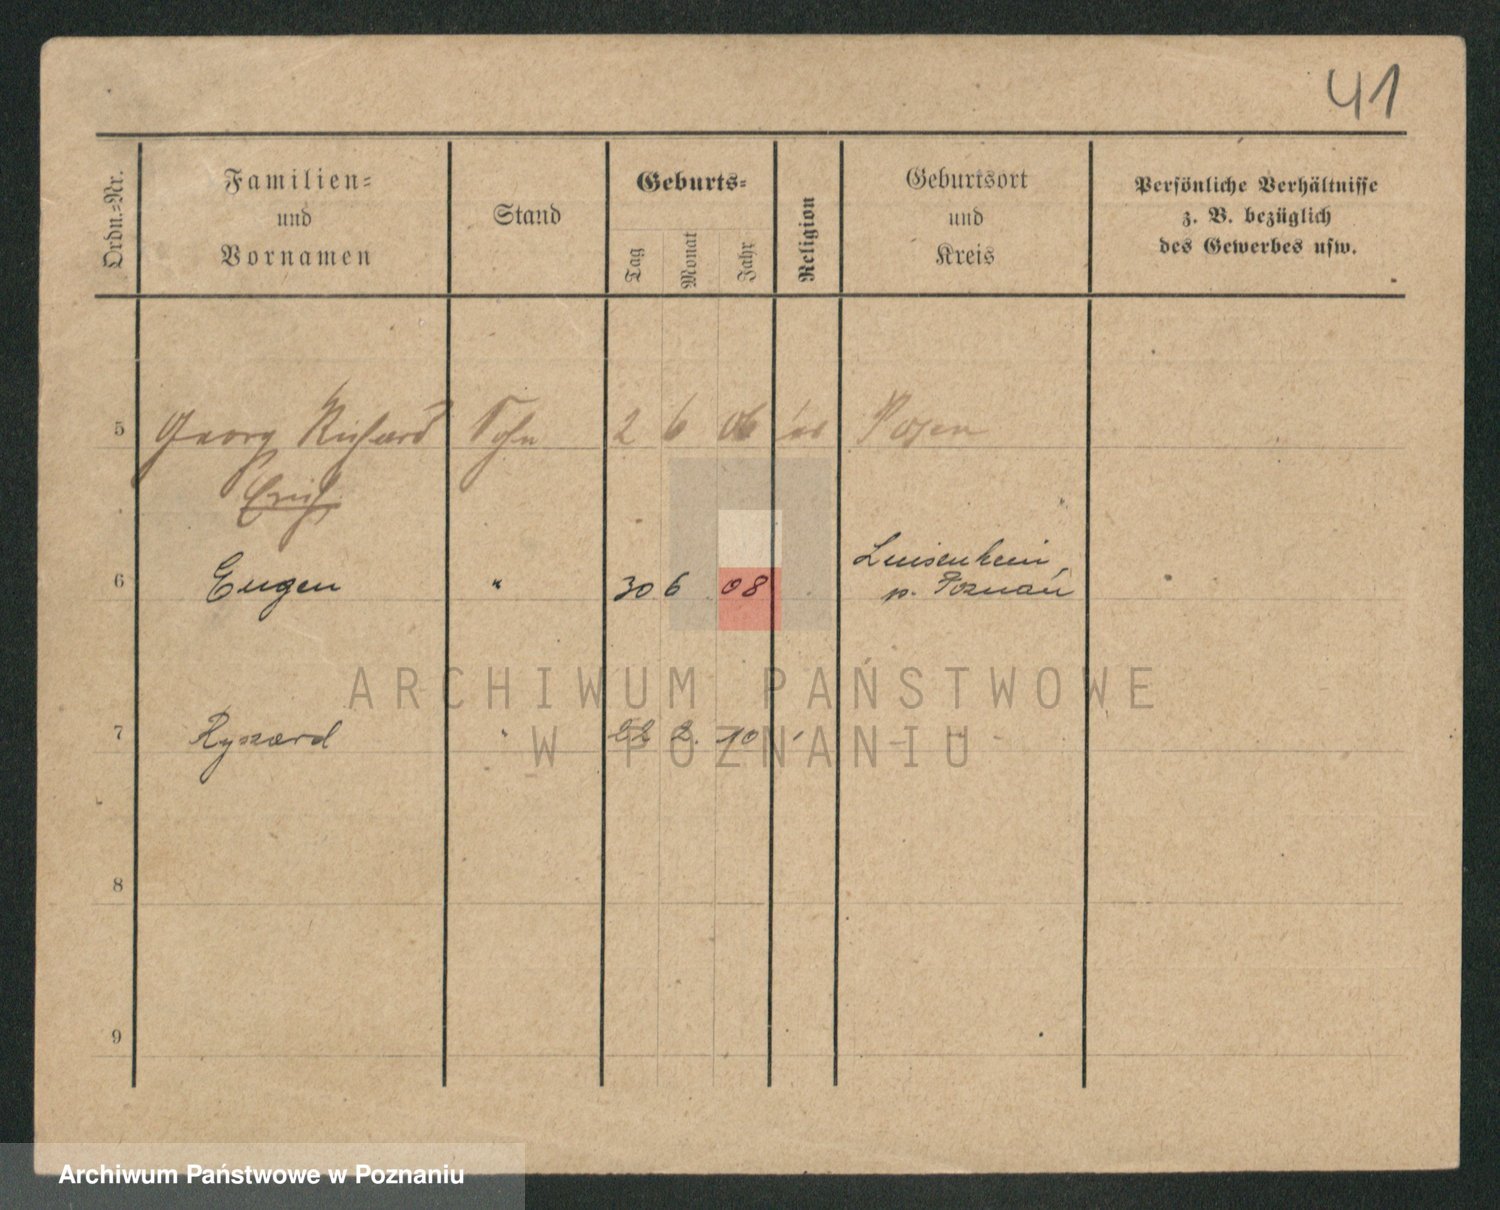 41
Ordn.-Nr.
Familien-
und
Vornamen
Stand
Geburts-
Tag
Monat
Jahr
Religion
Geburtsort
und
Kreis
Persönliche Verhältnisse
z. B. bezüglich
des Gewerbes usw.
5 Georg Richard Sohn 2 6 06 Posen
Erich
Luisenhain,
6 Eugen " 30 6 08 p. Poznań
7 Ryszard " 22 2. 10 - " -
8
9
ARCHIWUM PAŃSTWOWE
W POZNANIU
Archiwum Państwowe w Poznaniu